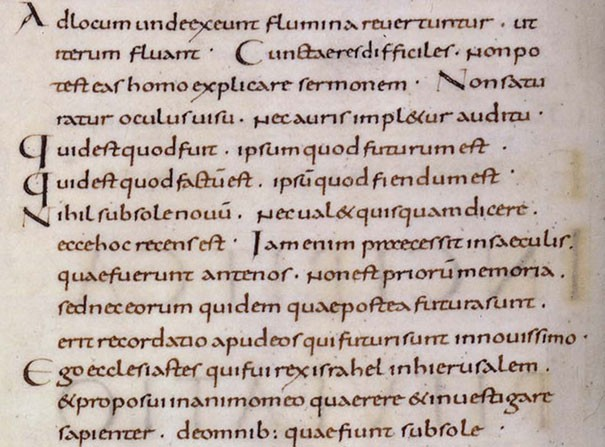 Ad locum unde exeunt flumina revertuntur · ut
iterum fluant · Cunctae res difficiles · Non po
test eas homo explicare sermonem · Non satu
ratur oculus visu · nec auris impl&ur auditu ·
Quid est quod fuit · ipsum quod futurum est ·
Quid est quod factū est · ipsū quod fiendum est ·
Nihil sub sole novū · nec val& quisquam dicere ·
ecce hoc recens est · Iam enim praecessit in saeculis ·
quae fuerunt ante nos · Non est priorū memoria ·
sed nec eorum quidem quae postea futura sunt ·
erit recordatio apud eos qui futuri sunt in novissimo ·
Ego ecclesiastes qui fui rex israhel in hierusalem ·
& proposui in animo meo quaerere & investigare
sapienter · de omnib: quae fiunt sub sole ·